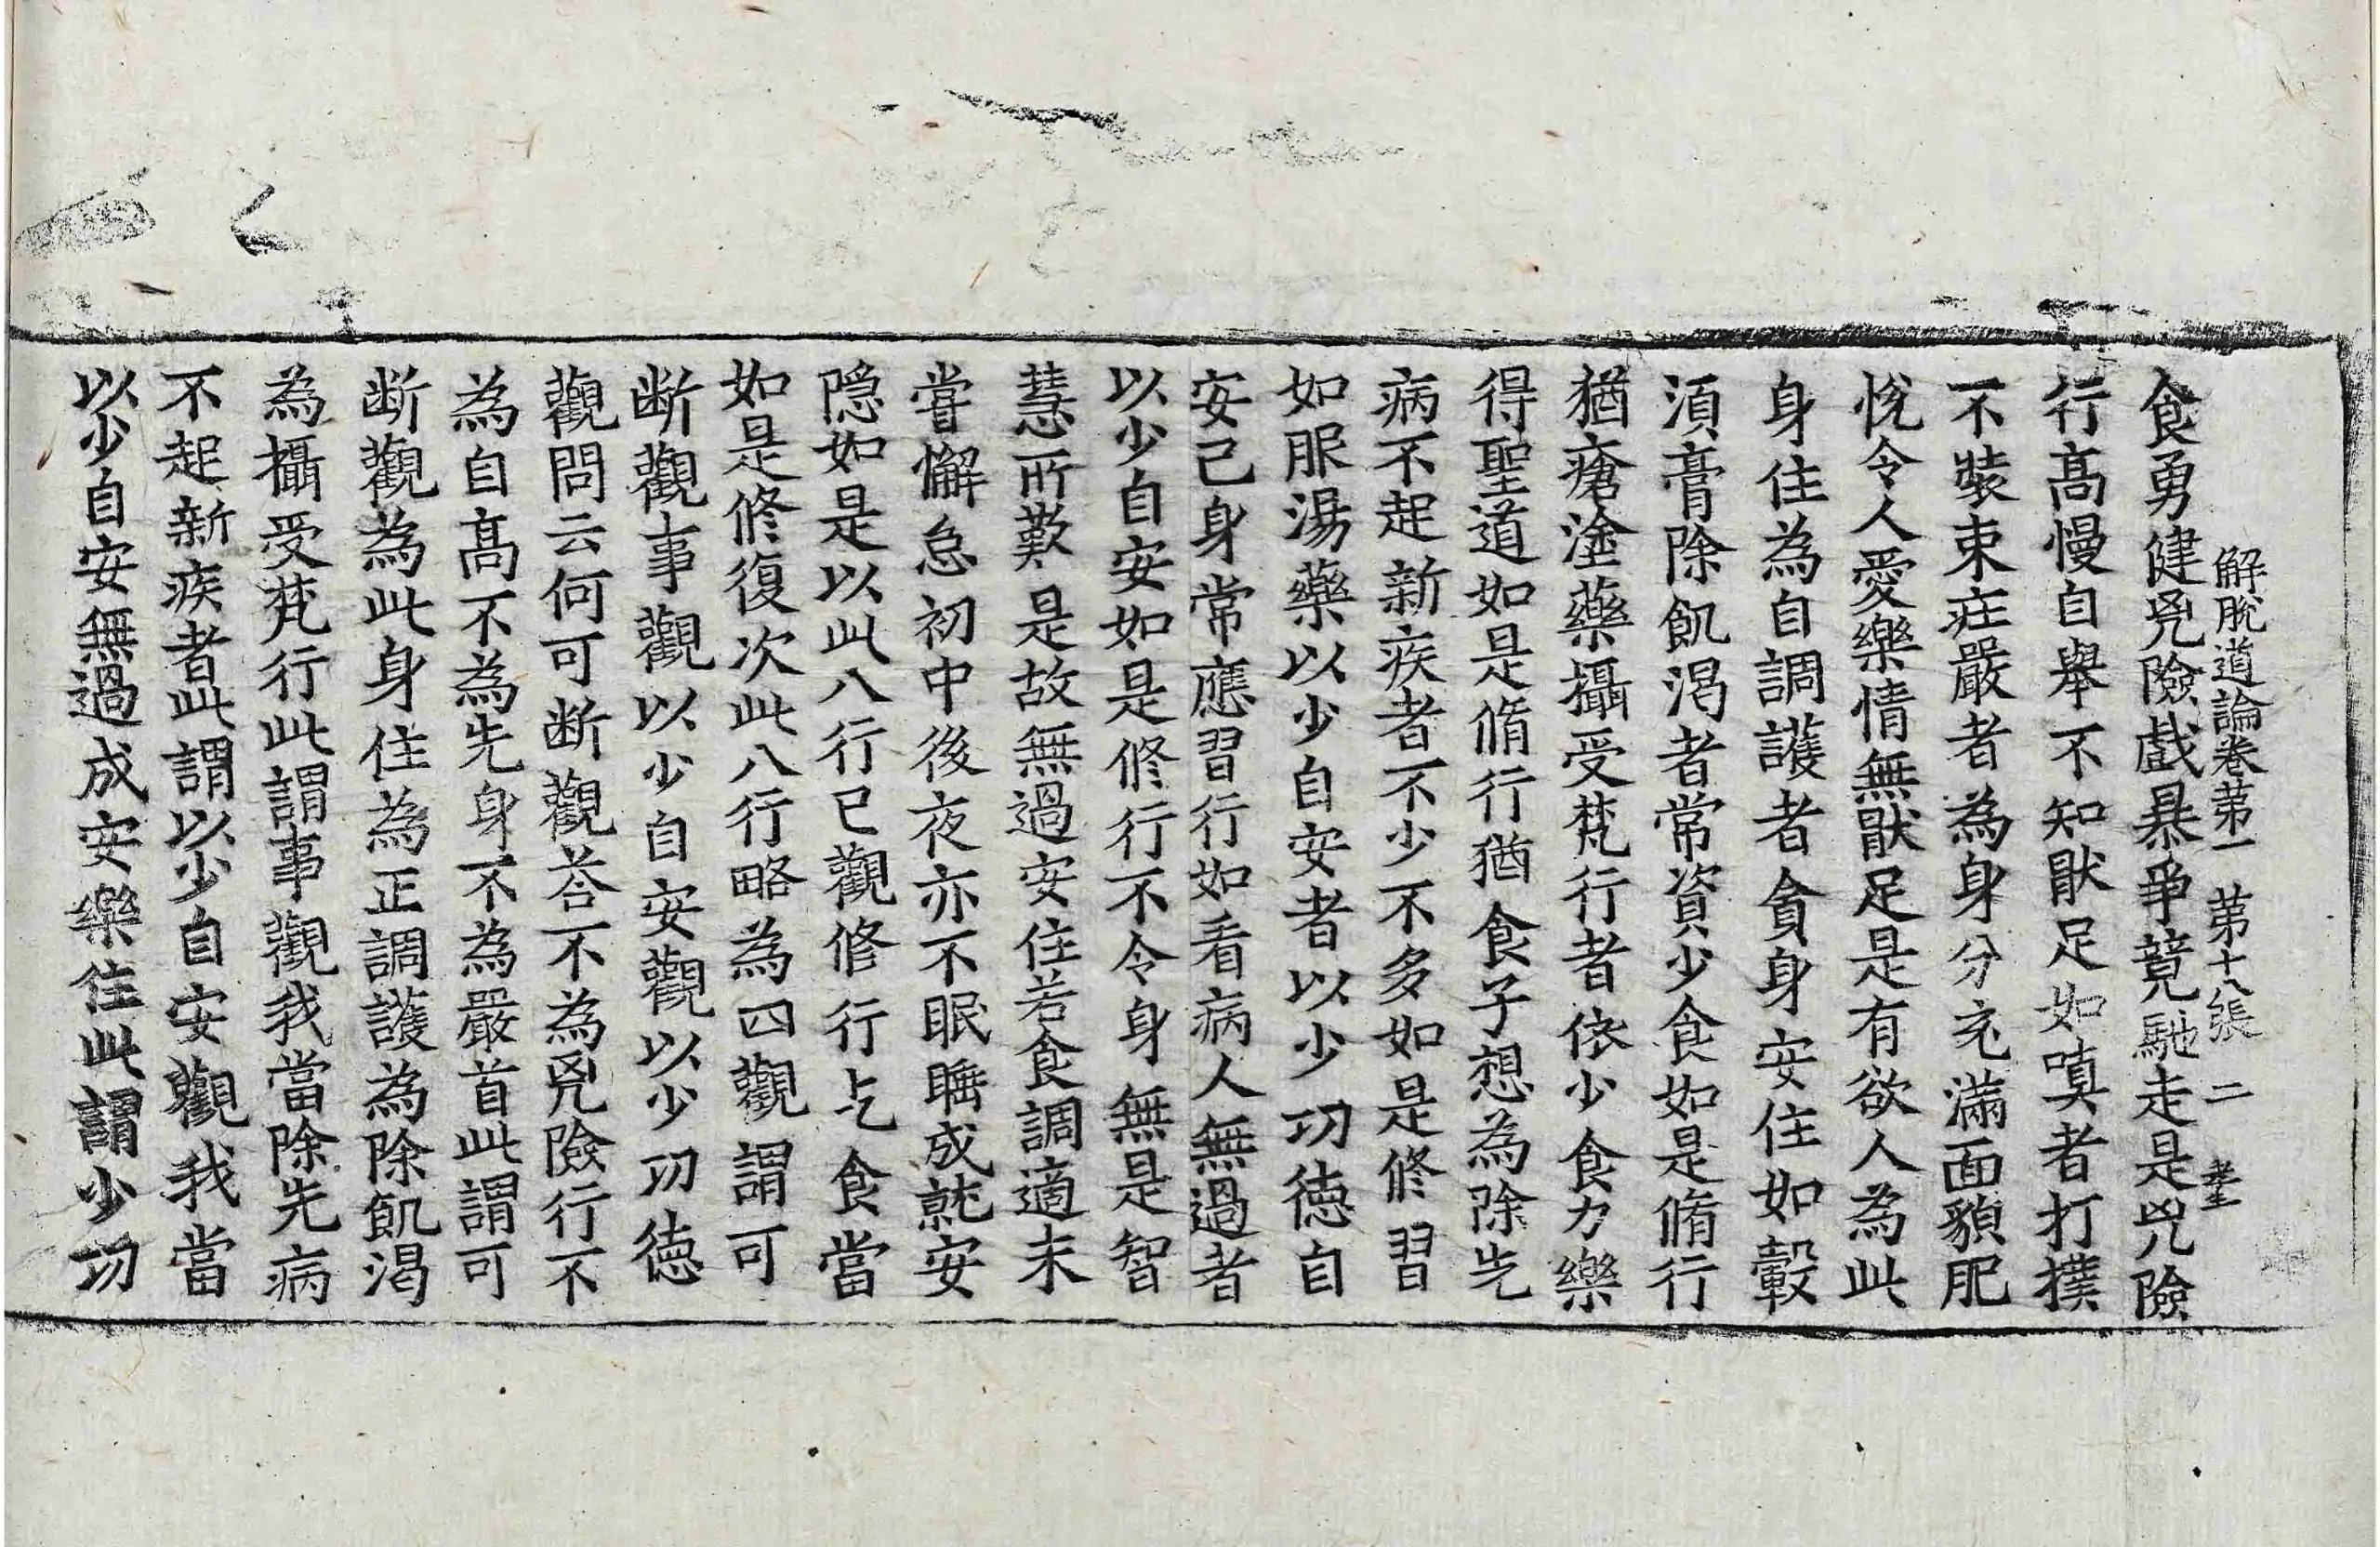 解脫道論卷第一 第十八張 二
食勇健兇險戲暴爭競馳走是兇險
行髙慢自舉不知猒足如嗔者打撲
不裝束疘嚴者為身分充滿面貌肥
悅令人愛樂情無猒足是有欲人為此
身住為自調護者貪身安住如轂
湏膏除飢渴者常資少食如是脩行
猶瘡塗藥攝受梵行者依少食力樂
得聖道如是脩行猶食子想為除先
病不起新疾者不少不多如是修習
如服湯藥以少自安者以少功徳自
安己身常應習行如看病人無過者
以少自安如是修行不令身無是智
慧所歎是故無過安住若食調適未
嘗懈怠初中後夜亦不眠睡成就安
隠如是以此八行已觀修行乞食當
如是修復次此八行略為四觀謂可
断觀事觀以少自安觀以少功徳
觀問云何可断觀荅不為兇險行不
為自髙不為先身不為嚴首此謂可
断觀為此身住為正調護為除飢渴
為攝受梵行此謂事觀我當除先病
不起新疾者此謂以少自安觀我當
以少自安無過成安樂住此謂少功